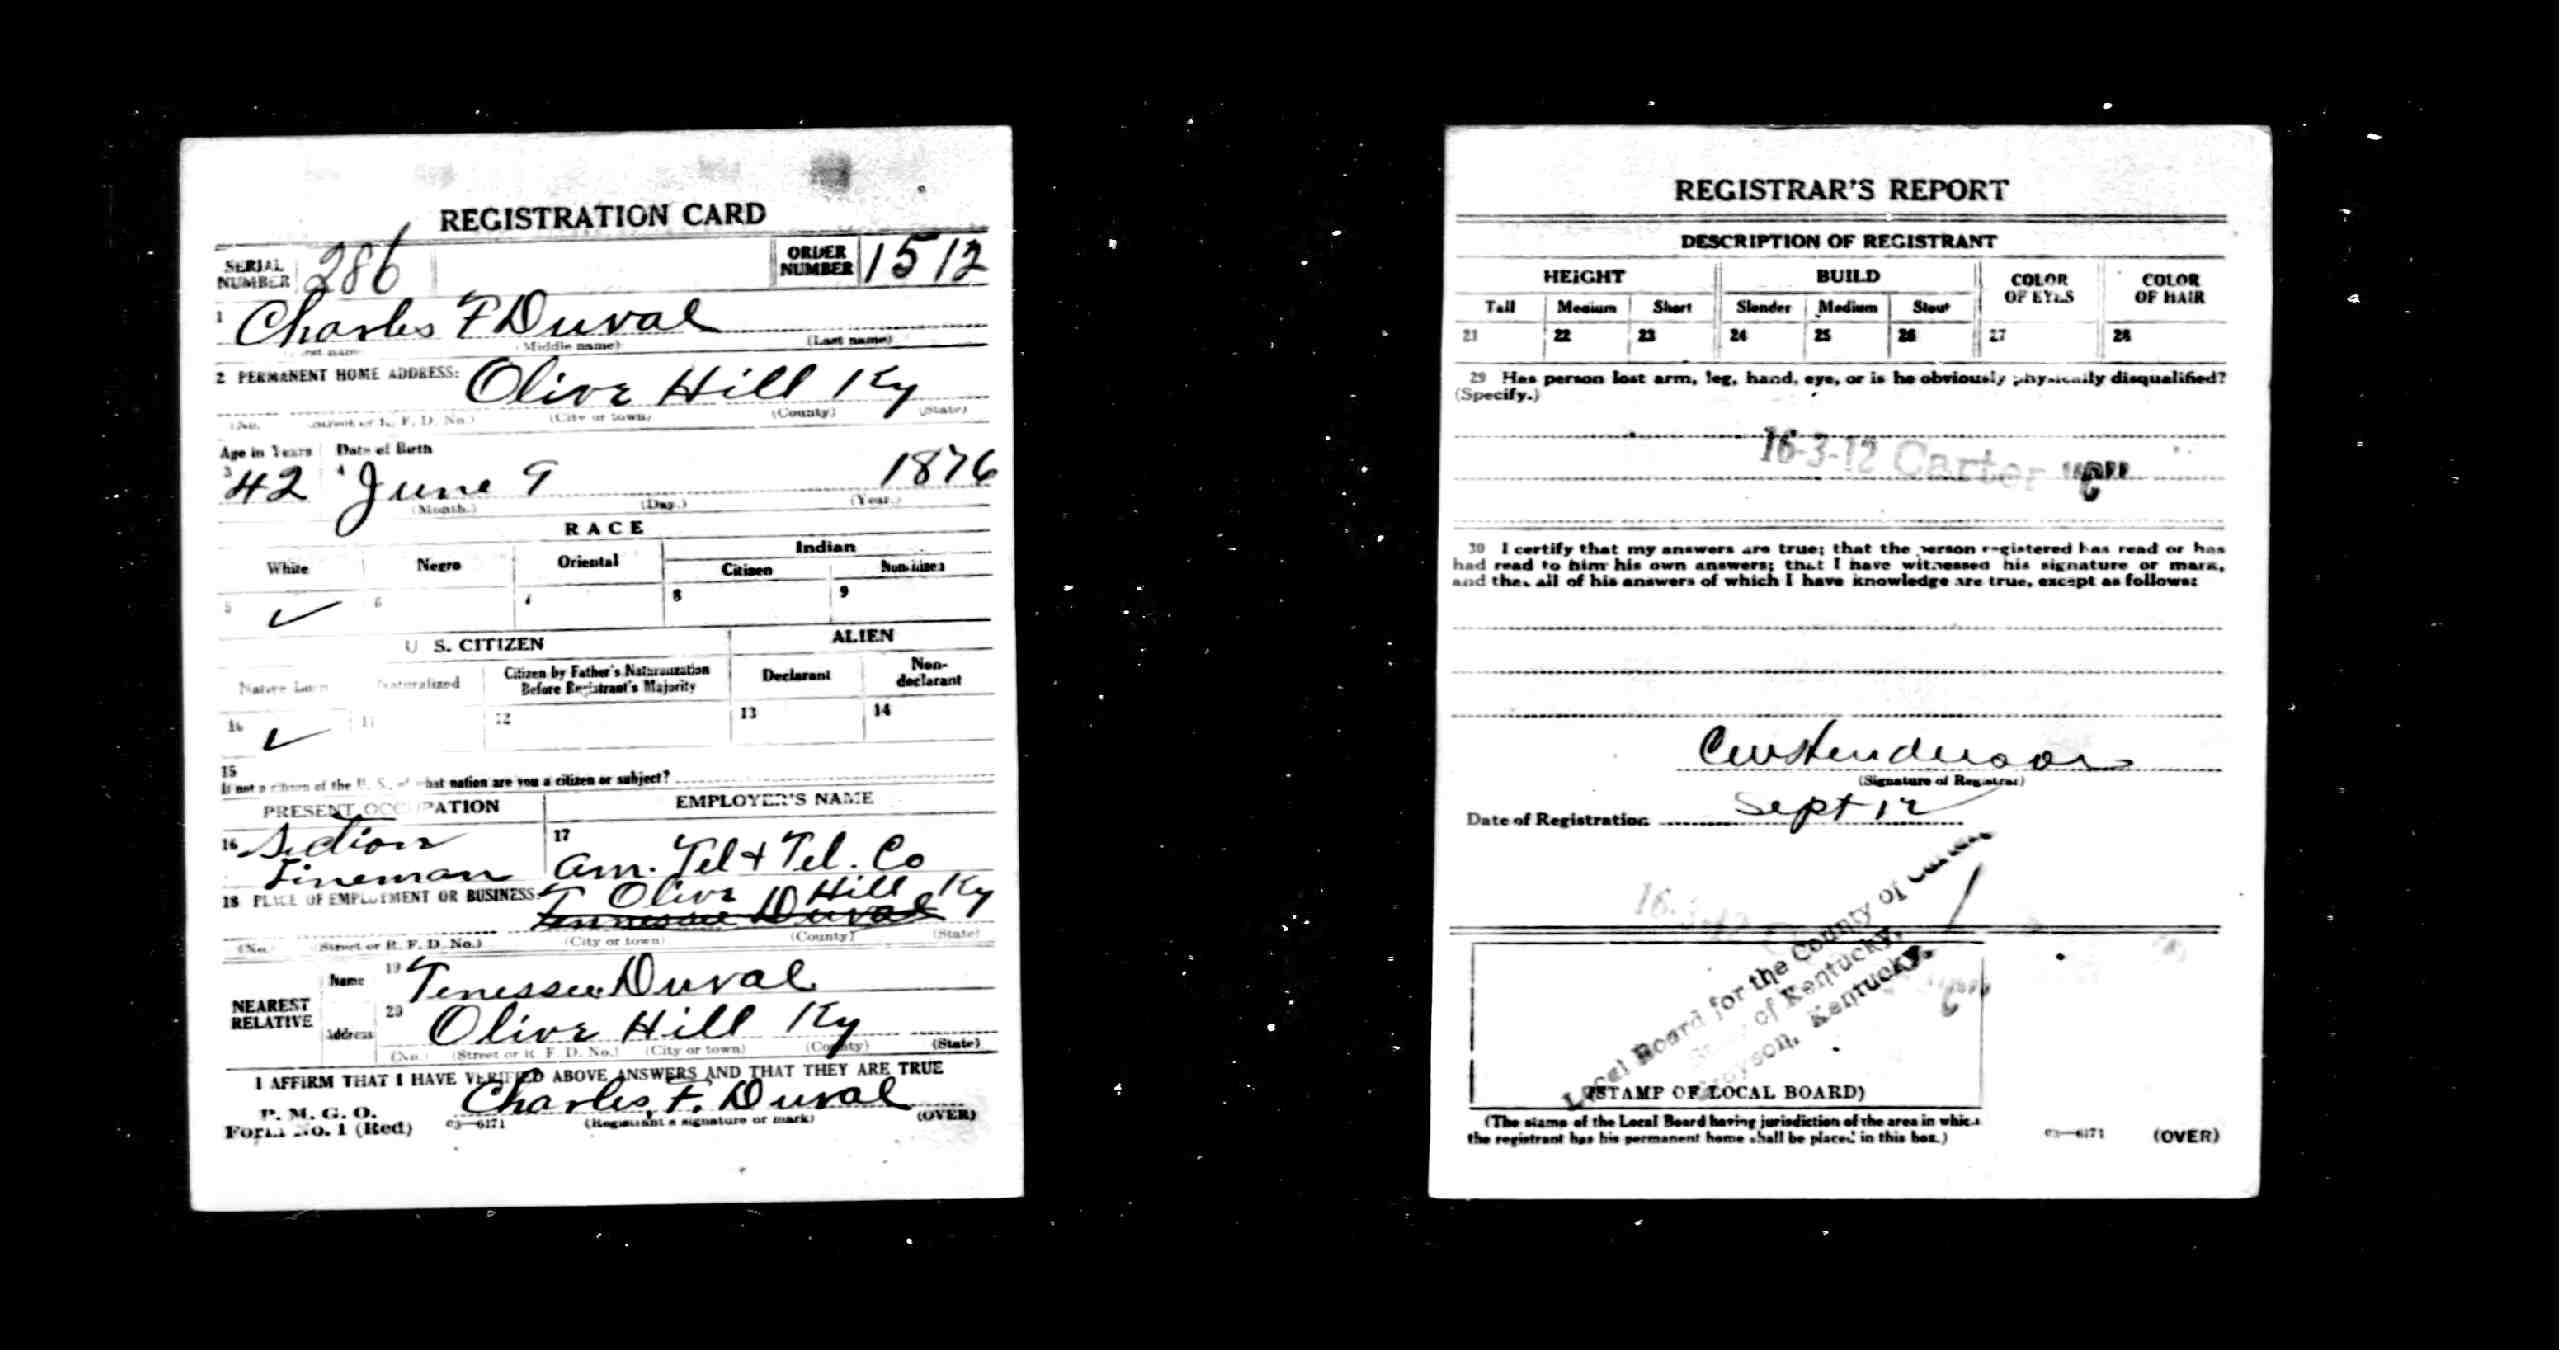 REGISTRATION CARD
SERIAL NUMBER 286 ORDER NUMBER 1512
1 Charles F Duval
(Middle name) (Last name)
2 PERMANENT HOME ADDRESS: Olive Hill Ky
(No. Street or R. F. D. No.) (City or town) (County) (State)
Age in Years Date of Birth
3 42 4 June 9 1876
(Month.) (Day.) (Year.)
RACE
White Negro Oriental Indian
Citizen Noncitizen
5 ✓ 6 7 8 9
U. S. CITIZEN ALIEN
Native Born Naturalized Citizen by Father's Naturalization Before Registrant's Majority Declarant Non-declarant
10 ✓ 11 12 13 14
15
If not a citizen of the U. S., of what nation are you a citizen or subject?
PRESENT OCCUPATION EMPLOYER'S NAME
16 Section Lineman 17 Am. Tel & Tel. Co
18 PLACE OF EMPLOYMENT OR BUSINESS: Olive Hill Ky
Tennessee Duval
(No.) (Street or R. F. D. No.) (City or town) (County) (State)
NEAREST RELATIVE Name 19 Tenessee Duval
Address 20 Olive Hill Ky
(No.) (Street or R. F. D. No.) (City or town) (County) (State)
I AFFIRM THAT I HAVE VERIFIED ABOVE ANSWERS AND THAT THEY ARE TRUE
P. M. G. O.
Form No. 1 (Red) 03—6171 Charles F. Duval
(Registrant's signature or mark) (OVER)
REGISTRAR'S REPORT
DESCRIPTION OF REGISTRANT
HEIGHT BUILD COLOR OF EYES COLOR OF HAIR
Tall Medium Short Slender Medium Stout
21 22 23 24 25 26 27 28
29 Has person lost arm, leg, hand, eye, or is he obviously physically disqualified?
(Specify.)
16-3-12 Carter
30 I certify that my answers are true; that the person registered has read or has
had read to him his own answers; that I have witnessed his signature or mark,
and that all of his answers of which I have knowledge are true, except as follows:
CW Henderson
(Signature of Registrar)
Date of Registration Sept 12
Local Board for the County of Carter
State of Kentucky,
Grayson, Kentucky.
(STAMP OF LOCAL BOARD)
(The stamp of the Local Board having jurisdiction of the area in which
the registrant has his permanent home shall be placed in this box.)
03—6171 (OVER)